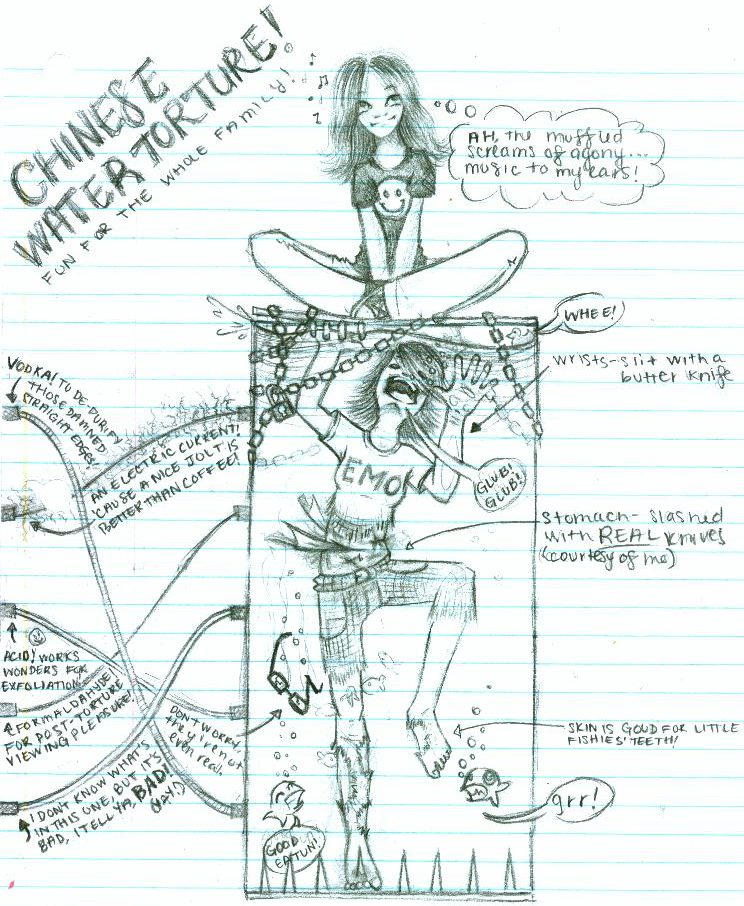 CHINESE
WATER TORTURE!
FUN FOR THE WHOLE FAMILY!
AH, the muffled
screams of agony...
music to my ears!
WHEE!
wrists-slit with a
butter knife
VODKA! TO DE PURIFY
THOSE DAMNED
STRAIGHT EDGES!
AN ELECTRIC CURRENT!
'CAUSE A NICE JOLT IS
BETTER THAN COFFEE!
EMO
GLUB!
GLUB!
stomach- slashed
with REAL knives
(courtesy of me)
ACID! WORKS
WONDERS FOR
EXFOLIATION
FORMALDAHYDE
FOR POST-TORTURE
VIEWING PLEASURE!
DON'T WORRY,
they're not
even real.
SKIN IS GOOD FOR LITTLE
FISHIES' TEETH!
I DON'T KNOW WHAT'S
IN THIS ONE, BUT IT'S
BAD, I TELL YA, BAD!
GOOD
EATUN!
grr!